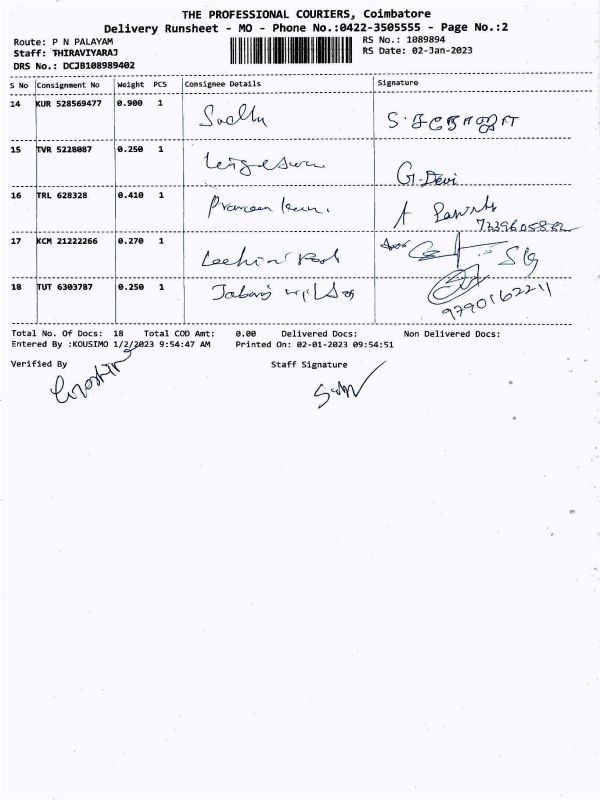 THE PROFESSIONAL COURIERS, Coimbatore
Delivery Runsheet - MO - Phone No.:0422-3505555 - Page No.:2
Route: P N PALAYAM
Staff: THIRAVIYARAJ
DRS No.: DCJB108989402
RS No.: 1089894
RS Date: 02-Jan-2023
S No Consignment No Weight PCS Consignee Details Signature
14 KUR 528569477 0.900 1
15 TVR 5228087 0.250 1 G. Devi
16 TRL 628328 0.410 1 A
7339605882
17 KCM 21222266 0.270 1
18 TUT 6303787 0.250 1
9790162211
Total No. Of Docs: 18 Total COD Amt: 0.00 Delivered Docs: Non Delivered Docs:
Entered By :KOUSIMO 1/2/2023 9:54:47 AM Printed On: 02-01-2023 09:54:51
Verified By Staff Signature